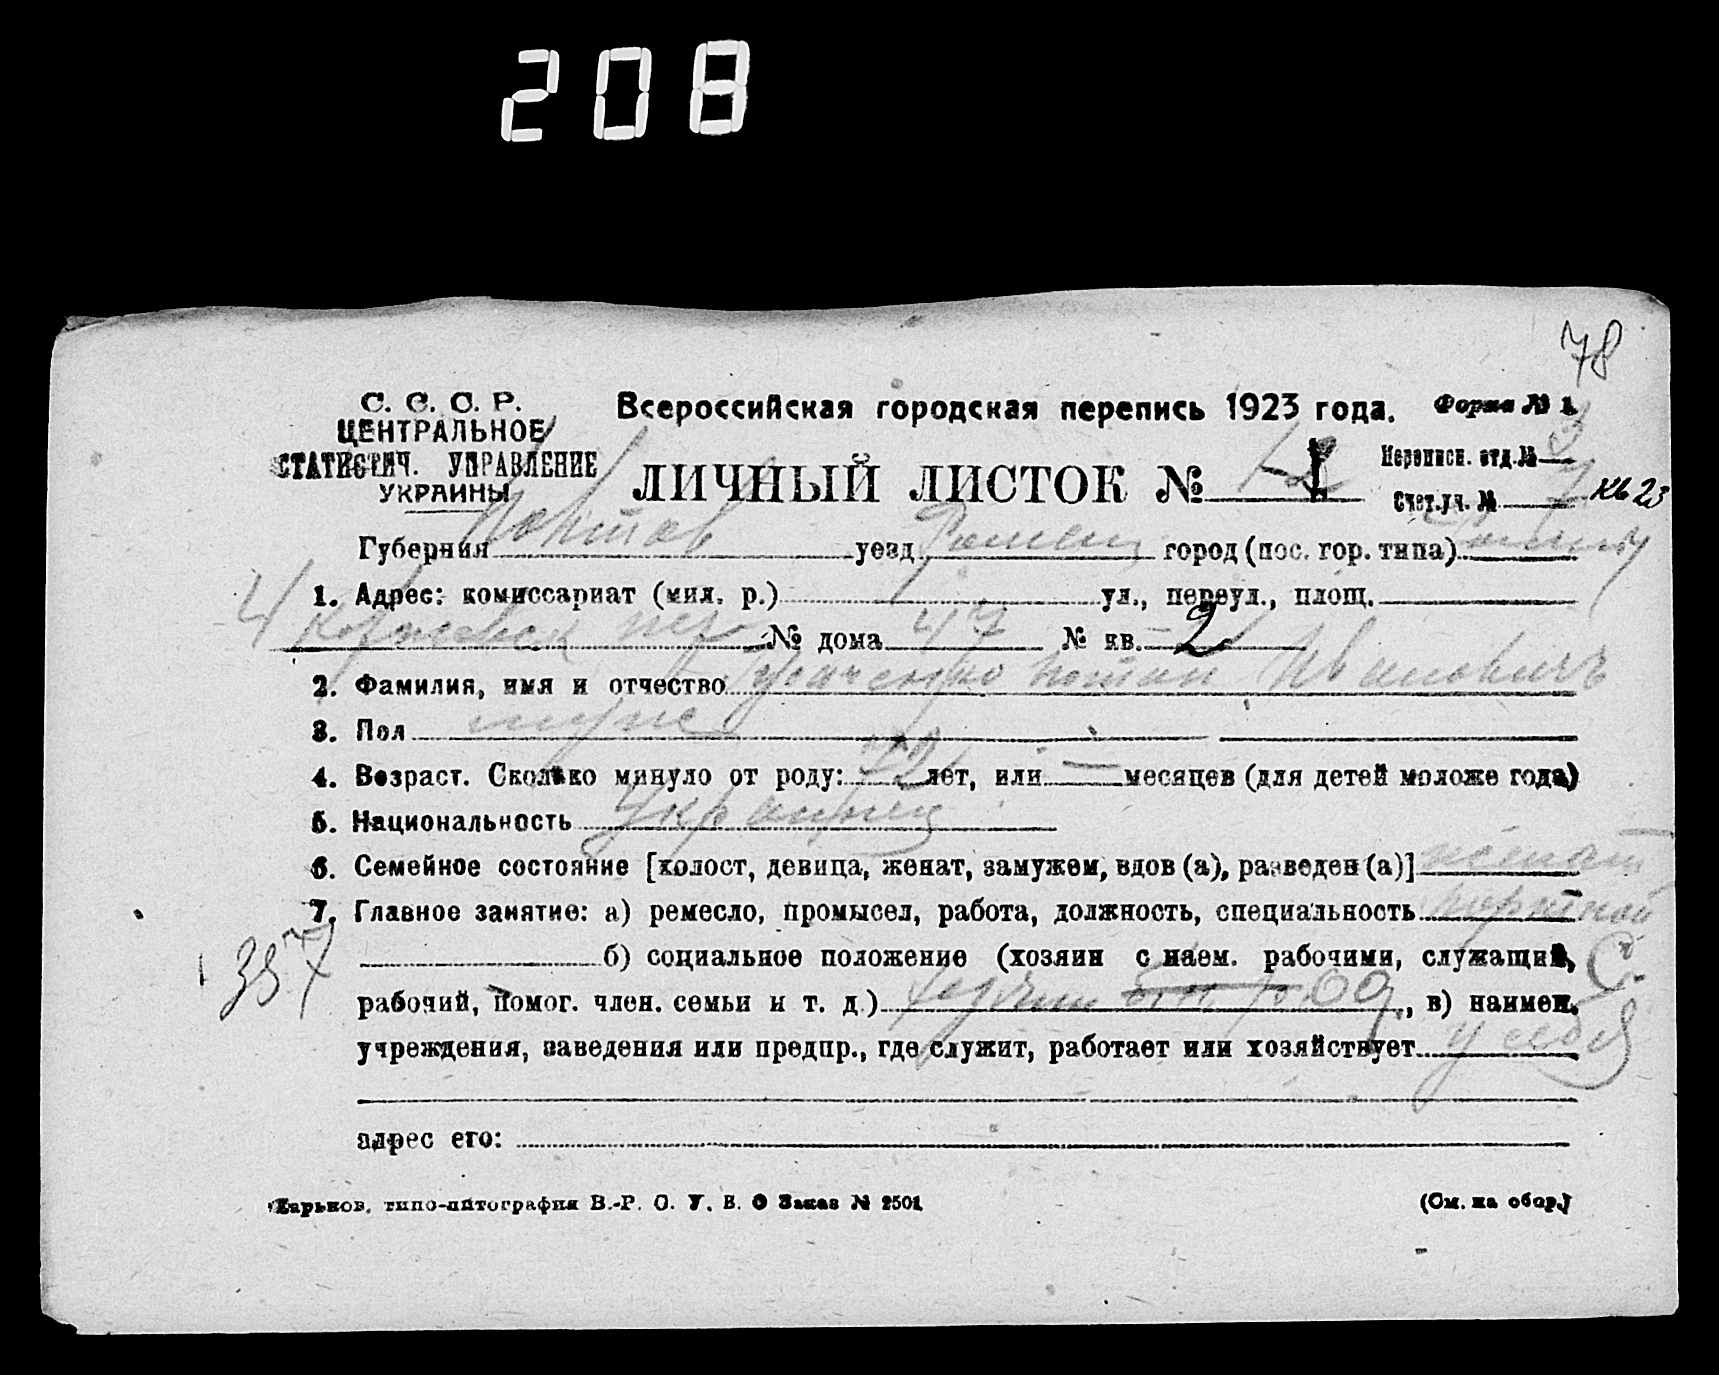 208
78
С. С. С. Р.
ЦЕНТРАЛЬНОЕ
СТАТИСТИЧ. УПРАВЛЕНИЕ
УКРАИНЫ
Всероссийская городская перепись 1923 года.
Форма № 1.
ЛИЧНЫЙ ЛИСТОК №
Переписн. отд. № 3
Счет. уч. № 7 кв 23
Губерния Полтав уезд Ромен город (пос. гор. типа) Ромны
1. Адрес: комиссариат (мил. р.) ул., переул., площ.
4 пер № дома 47 № кв. 2
2. Фамилия, имя и отчество Иванович
3. Пол муж
4. Возраст. Сколько минуло от роду: 72 лет, или — месяцев (для детей моложе года)
5. Национальность Украинец
6. Семейное состояние [холост, девица, женат, замужем, вдов (а), разведен (а)] женат
7. Главное занятие: а) ремесло, промысел, работа, должность, специальность портной
б) социальное положение (хозяин с наем. рабочими, служащий,
357
рабочий, помог. член. семьи и т. д.) , в) наимен.
учреждения, заведения или предпр., где служит, работает или хозяйствует у себя
адрес его:
Харьков, типо-литография В.-Р. С. У. В. О Заказ № 2501
(См. на обор.)